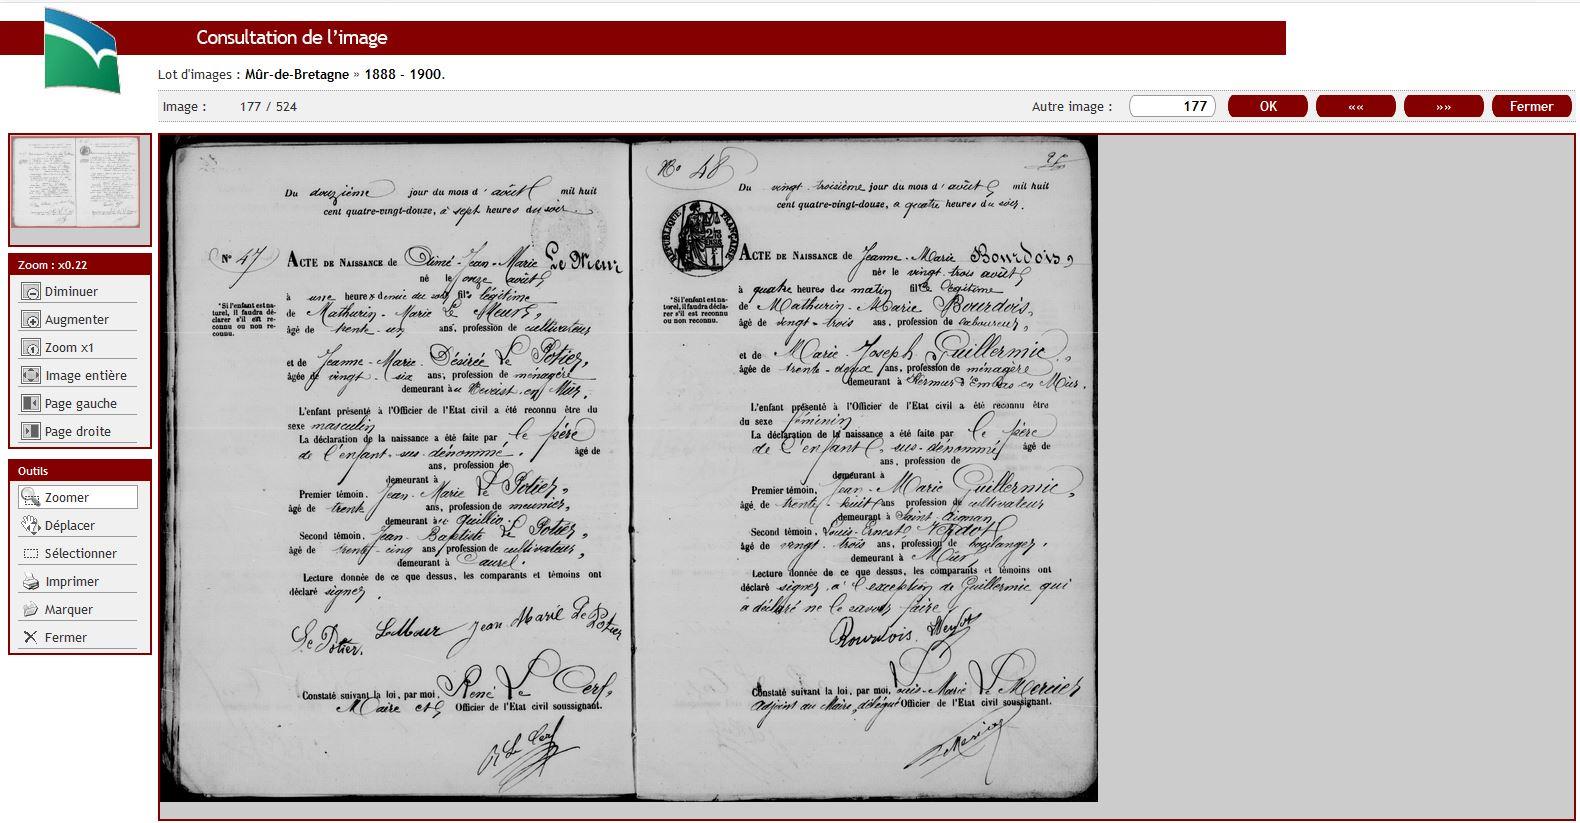 Consultation de l'image
Lot d'images : Mûr-de-Bretagne » 1888 - 1900.
Image : 177 / 524
Autre image : 177 OK «« »» Fermer
Zoom : x0.22
Diminuer
Augmenter
Zoom x1
Image entière
Page gauche
Page droite
Outils
Zoomer
Déplacer
Sélectionner
Imprimer
Marquer
Fermer
Du douzième jour du mois d'août mil huit
cent quatre-vingt-douze, à sept heures du soir
N° 47
ACTE DE NAISSANCE de Aimé-Jean-Marie Le Meur
né le onze août
à une heure & demie du soir fils légitime
*Si l'enfant est na-
turel, il faudra dé-
clarer s'il est re-
connu ou non re-
connu.
de Mathurin-Marie Le Meur,
âgé de trente-un ans, profession de cultivateur
et de Jeanne-Marie-Désirée Le Potier,
âgée de vingt-six ans, profession de ménagère
demeurant à en Mûr.
L'enfant présenté à l'Officier de l'Etat civil a été reconnu être du
sexe masculin
La déclaration de la naissance a été faite par le père
de l'enfant sus-dénommé. âgé de
ans, profession de
demeurant à
Premier témoin, Jean-Marie Le Potier,
âgé de trente ans, profession de meunier,
demeurant à Quillio.
Second témoin, Jean-Baptiste Le Potier,
âgé de trente-cinq ans, profession de cultivateur,
demeurant à Caurel.
Lecture donnée de ce que dessus, les comparants et témoins ont
déclaré signer.
Le Potier. Le Meur Jean Marie Le Potier
Constaté suivant la loi, par moi, René Le Cerf,
Maire et Officier de l'Etat civil soussignant.
R Le Cerf
N° 48
Du vingt-troisième jour du mois d'août mil huit
cent quatre-vingt-douze, à quatre heures du soir.
RÉPUBLIQUE FRANÇAISE
ACTE DE NAISSANCE de Jeanne-Marie Bourdois,
née le vingt-trois août
à quatre heures du matin fille légitime
*Si l'enfant est na-
turel, il faudra décla-
rer s'il est reconnu
ou non reconnu.
de Mathurin-Marie Bourdois,
âgé de vingt-trois ans, profession de laboureur,
et de Marie-Joseph Guillermic,
âgée de trente-deux ans, profession de ménagère
demeurant à Kermur d'Embas en Mûr.
L'enfant présenté à l'Officier de l'Etat civil a été reconnu être
du sexe féminin
La déclaration de la naissance a été faite par le père
de l'enfant sus-dénommé âgé de
ans, profession de
demeurant à
Premier témoin, Jean-Marie Guillermic,
âgé de trente-huit ans profession de cultivateur
demeurant à Saint-Aignan
Second témoin, Louis-Ernest
âgé de vingt-trois ans, profession de boulanger.
demeurant à Mûr,
Lecture donnée de ce que dessus, les comparants et témoins ont
déclaré signer, à l'exception de Guillermic qui
a déclaré ne le savoir faire.
Bourdois.
Constaté suivant la loi, par moi, Louis-Marie Le Mercier
adjoint au Maire, délégué Officier de l'Etat civil soussignant.
Le Mercier